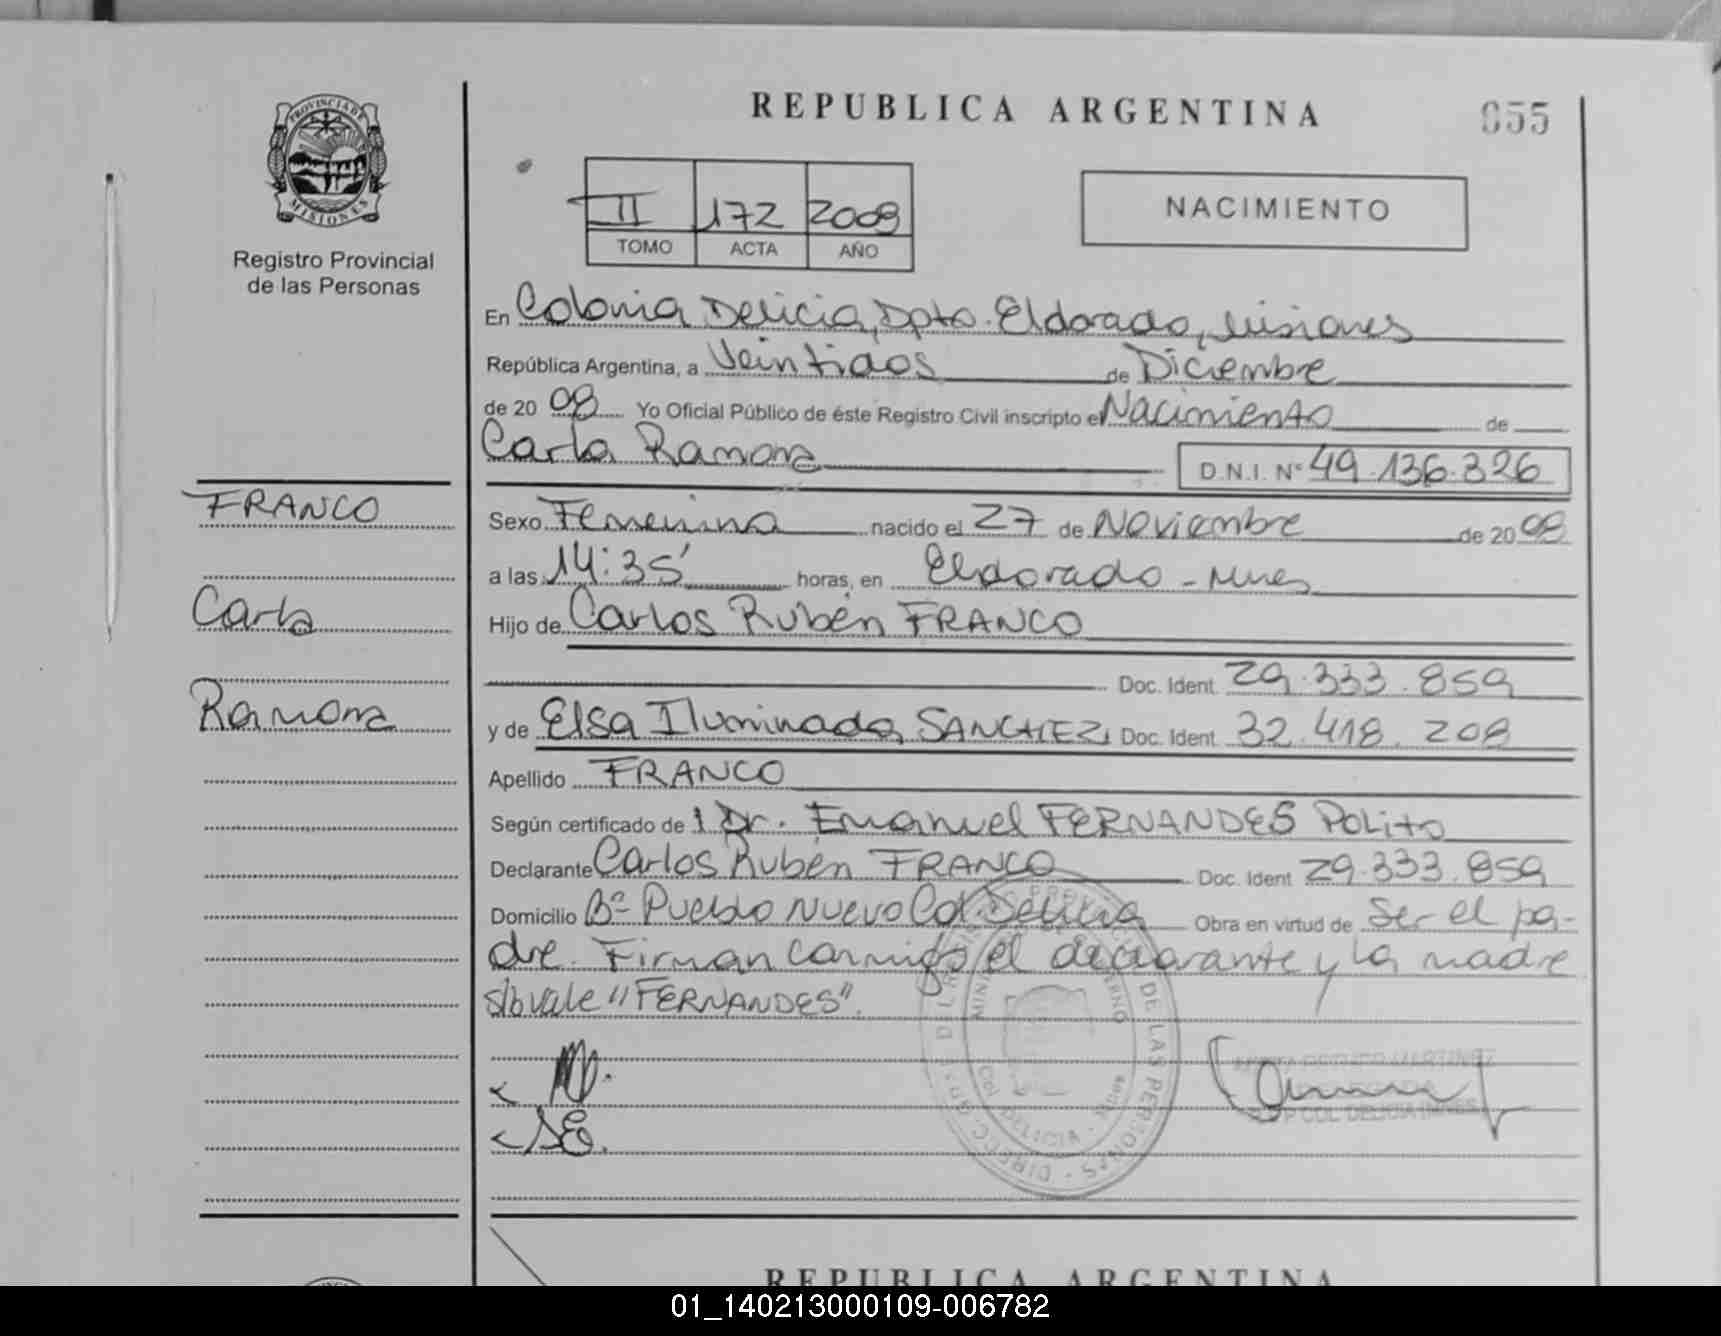 REPUBLICA ARGENTINA
055
PROVINCIA DE
MISIONES
Registro Provincial
de las Personas
II 172 2008
TOMO ACTA AÑO
NACIMIENTO
En Colonia Delicia, Dpto. Eldorado, Misiones
República Argentina, a Veintidos de Diciembre
de 20 08 Yo Oficial Público de éste Registro Civil inscripto el Nacimiento de
Carla Ramona D.N.I. Nº 49.136.326
FRANCO
Carla
Ramona
Sexo Femenino nacido el 27 de Noviembre de 20 08
a las 14:35' horas, en Eldorado - Mnes
Hijo de Carlos Rubén FRANCO
Doc. Ident. 29.333.859
y de Elsa Iluminada SANCHEZ, Doc. Ident. 32.418.208
Apellido FRANCO
Según certificado de l Dr. Emanuel FERNANDES POLITO
Declarante Carlos Rubén FRANCO Doc. Ident 29.333.859
Domicilio Bº Pueblo Nuevo Col. Delicia Obra en virtud de Ser el pa-
dre. Firman conmigo el declarante y la madre
s/b vale "FERNANDES".
SE.
DE LAS PERSONAS
COL. DELICIA
REPUBLICA ARGENTINA
01_140213000109-006782